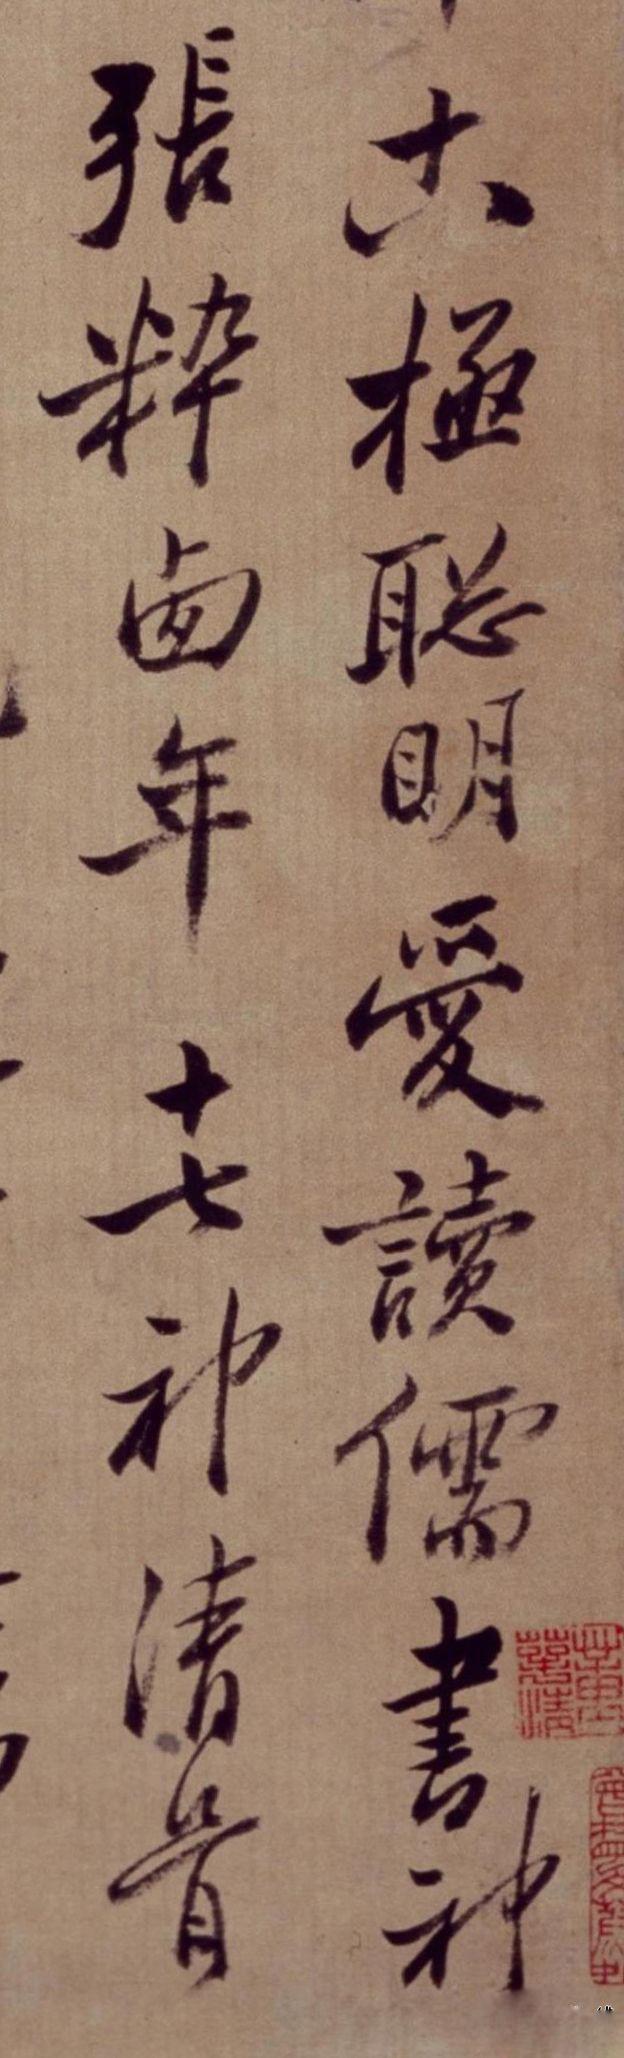 十六極聰明愛讀儒書神
張粹卣年十七神清骨